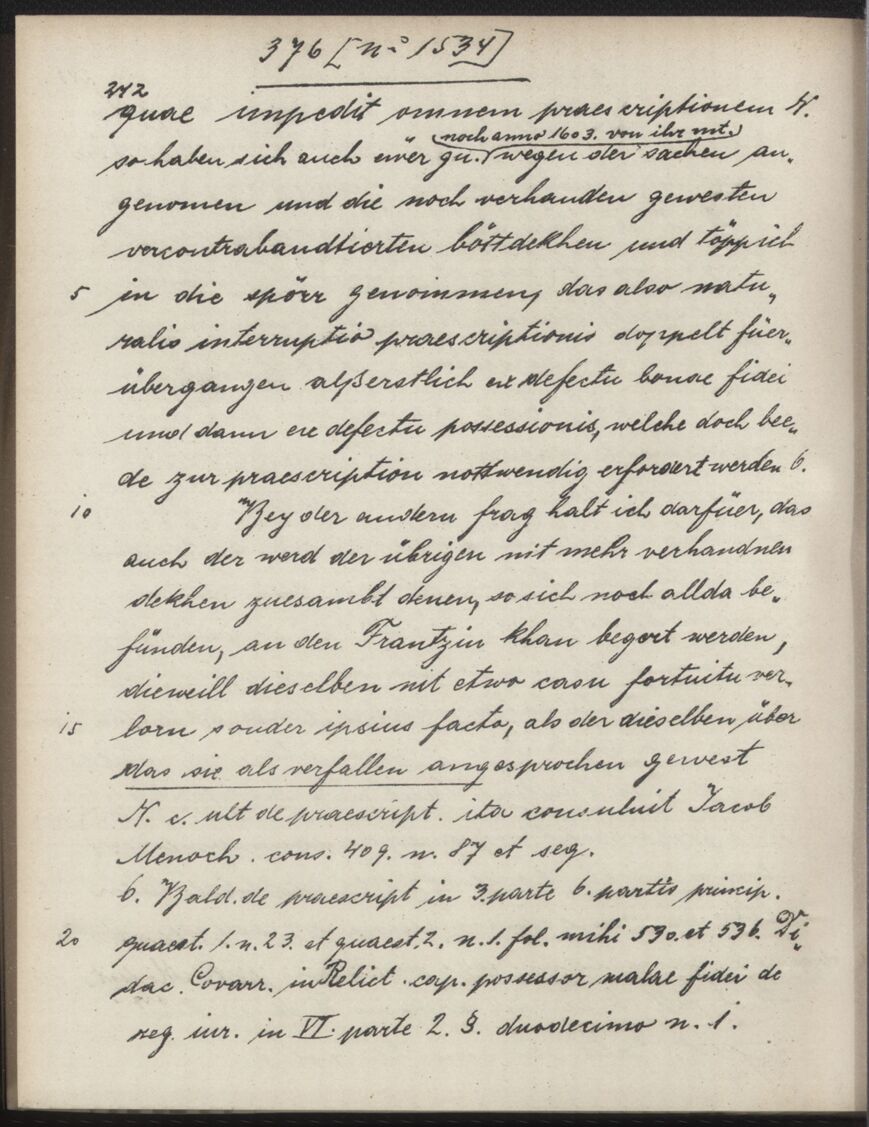 376 [nº 1534]
242
quae impedit omnem praescriptionem N.
(noch anno 1603. von ihr mt.)
so haben sich auch eüer gn. wegen der sachen an„
genomen und die noch verhanden gewesten
vercontrabandtierten böttdekhen und töppich
5 in die spörr genoimmen, das also natu„
ralis interruptio praescriptionis doppelt füer„
übergangen alßerstlich ex defectu bonae fidei
und dann ex defectu possessionis, welche doch bee„
de zur praescription nottwendig erfordert werden 6.
10 Bey der andern frag halt ich darfüer, das
auch der werd der übrigen nit mehr verhandnen
dekhen zuesambt denen, so sich noch allda be„
fünden, an den Frantzin khan begert werden,
dieweill dieselben nit etwo casu fortuitu ver„
15 lorn sonder ipsius facto, als der dieselben über
das sie als verfallen angesprochen gewest
N. c. ult de praescript. ita consuluit Jacob
Menoch. cons. 409. n. 87 et seg.
6. Bald. de praescript in 3. parte 6. partis princip.
20 quaest. 1. n. 23. et quaest. 2. n. 1. fol. mihi 530. et 536. Di„
dac. Covarr. in Relict. cap. possessor malae fidei de
reg. iur. in VI. parte 2. §. duodecimo n. 1.